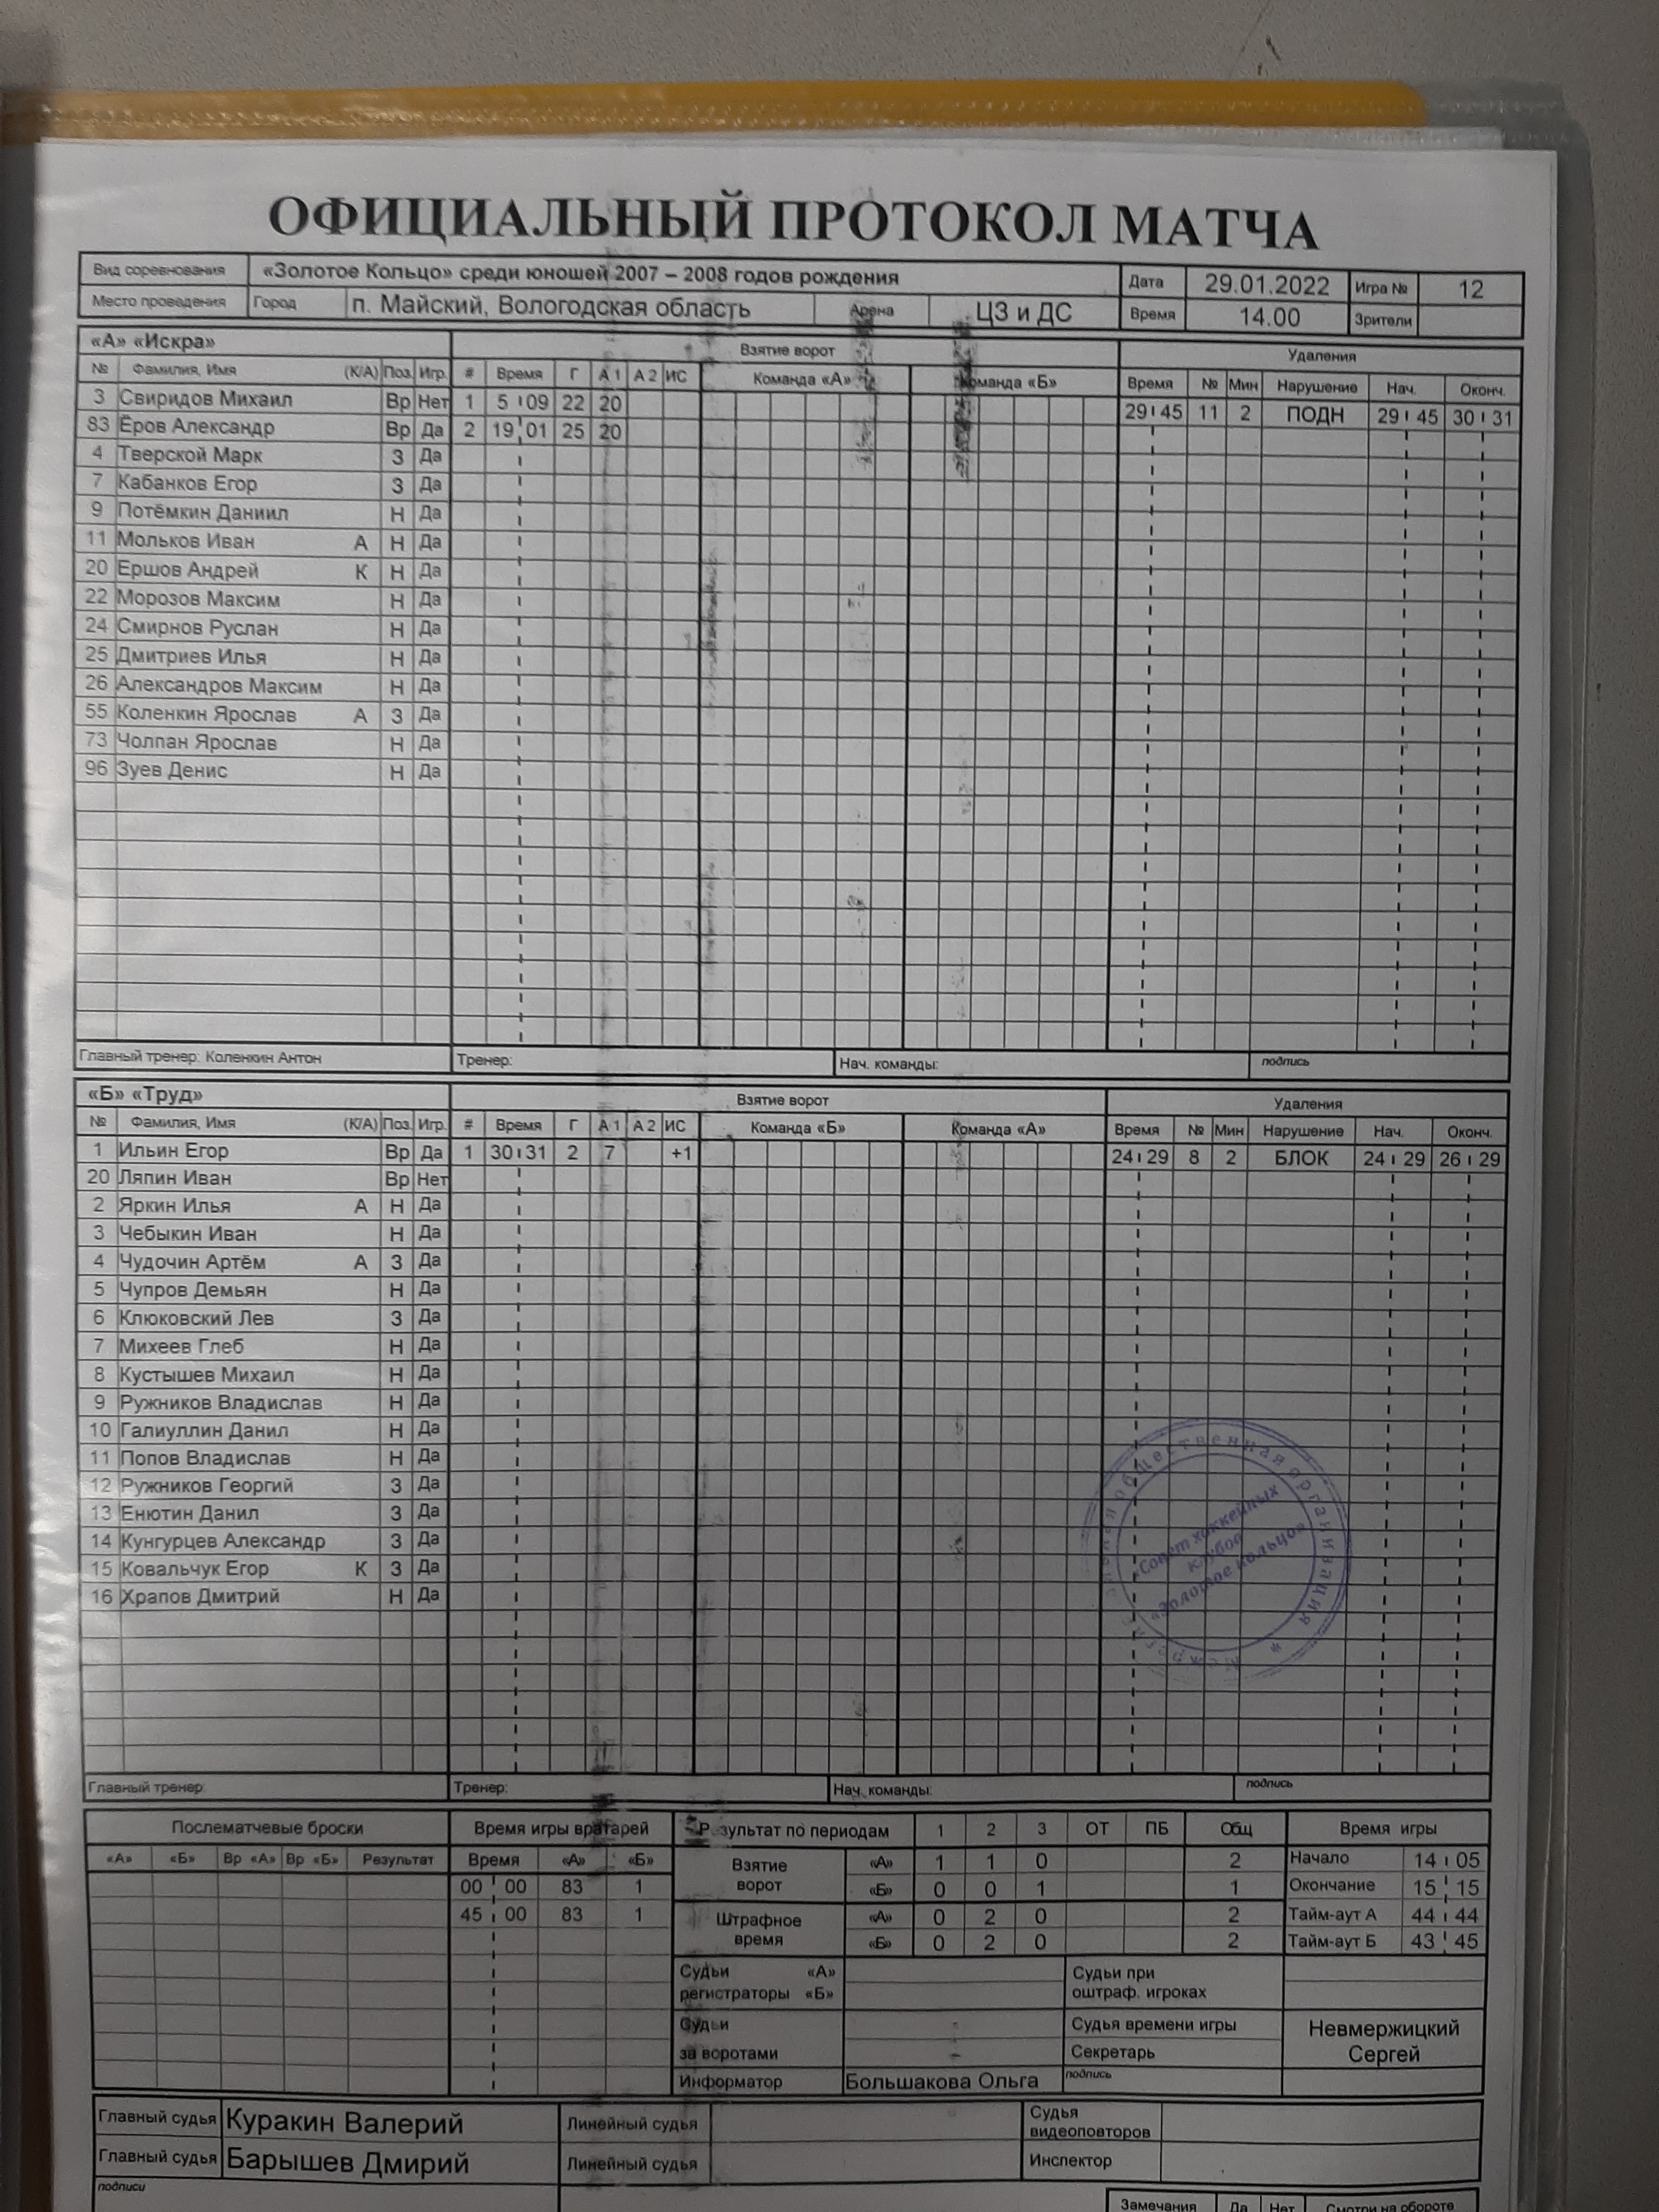 ОФИЦИАЛЬНЫЙ ПРОТОКОЛ МАТЧА
Вид соревнования «Золотое Кольцо» среди юношей 2007 – 2008 годов рождения Дата 29.01.2022 Игра № 12
Место проведения Город п. Майский, Вологодская область Арена ЦЗ и ДС Время 14.00 Зрители
«А» «Искра» Взятие ворот Удаления
№ Фамилия, Имя (К/А) Поз. Игр. # Время Г А 1 А 2 ИС Команда «А» Команда «Б» Время № Мин Нарушение Нач. Оконч.
3 Свиридов Михаил Вр Нет 1 5 09 22 20 29 45 11 2 ПОДН 29 45 30 31
83 Ёров Александр Вр Да 2 19 01 25 20
4 Тверской Марк З Да
7 Кабанков Егор З Да
9 Потёмкин Даниил Н Да
11 Мольков Иван А Н Да
20 Ершов Андрей К Н Да
22 Морозов Максим Н Да
24 Смирнов Руслан Н Да
25 Дмитриев Илья Н Да
26 Александров Максим Н Да
55 Коленкин Ярослав А З Да
73 Чолпан Ярослав Н Да
96 Зуев Денис Н Да
Главный тренер: Коленкин Антон Тренер: Нач. команды: подпись
«Б» «Труд» Взятие ворот Удаления
№ Фамилия, Имя (К/А) Поз. Игр. # Время Г А 1 А 2 ИС Команда «Б» Команда «А» Время № Мин Нарушение Нач. Оконч.
1 Ильин Егор Вр Да 1 30 31 2 7 +1 24 29 8 2 БЛОК 24 29 26 29
20 Ляпин Иван Вр Нет
2 Яркин Илья А Н Да
3 Чебыкин Иван Н Да
4 Чудочин Артём А З Да
5 Чупров Демьян Н Да
6 Клюковский Лев З Да
7 Михеев Глеб Н Да
8 Кустышев Михаил Н Да
9 Ружников Владислав Н Да
10 Галиуллин Данил Н Да
11 Попов Владислав Н Да
12 Ружников Георгий З Да
13 Енютин Данил З Да
14 Кунгурцев Александр З Да
15 Ковальчук Егор К З Да
16 Храпов Дмитрий Н Да
общественная организация
«Совет хоккейных
клубов
«Золотое кольцо»
Главный тренер: Тренер: Нач. команды: подпись
Послематчевые броски Время игры вратарей Результат по периодам 1 2 3 ОТ ПБ Общ Время игры
«А» «Б» Вр «А» Вр «Б» Результат Время «А» «Б» Взятие ворот «А» 1 1 0 2 Начало 14 05
00 00 83 1 «Б» 0 0 1 1 Окончание 15 15
45 00 83 1 Штрафное время «А» 0 2 0 2 Тайм-аут А 44 44
«Б» 0 2 0 2 Тайм-аут Б 43 45
Судьи «А» Судьи при
регистраторы «Б» оштраф. игроках
Судьи Судья времени игры Невмержицкий
за воротами Секретарь Сергей
Информатор Большакова Ольга подпись
Главный судья Куракин Валерий Линейный судья Судья видеоповторов
Главный судья Барышев Дмирий Линейный судья Инспектор
подписи
Замечания Да Нет Смотри на обороте